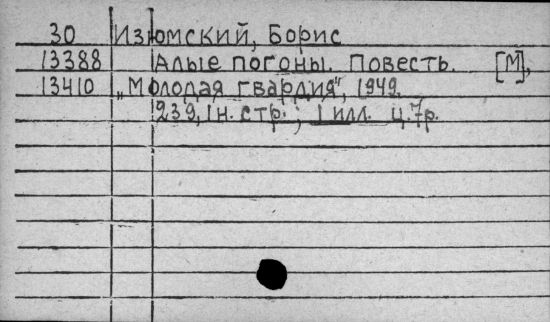 30 Изюмский, Борис
13388 Алые погоны. Повесть. [М],
13410 „Молодая гвардия", 1949.
239, 1н. стр.; 1 илл. ц. 7р.